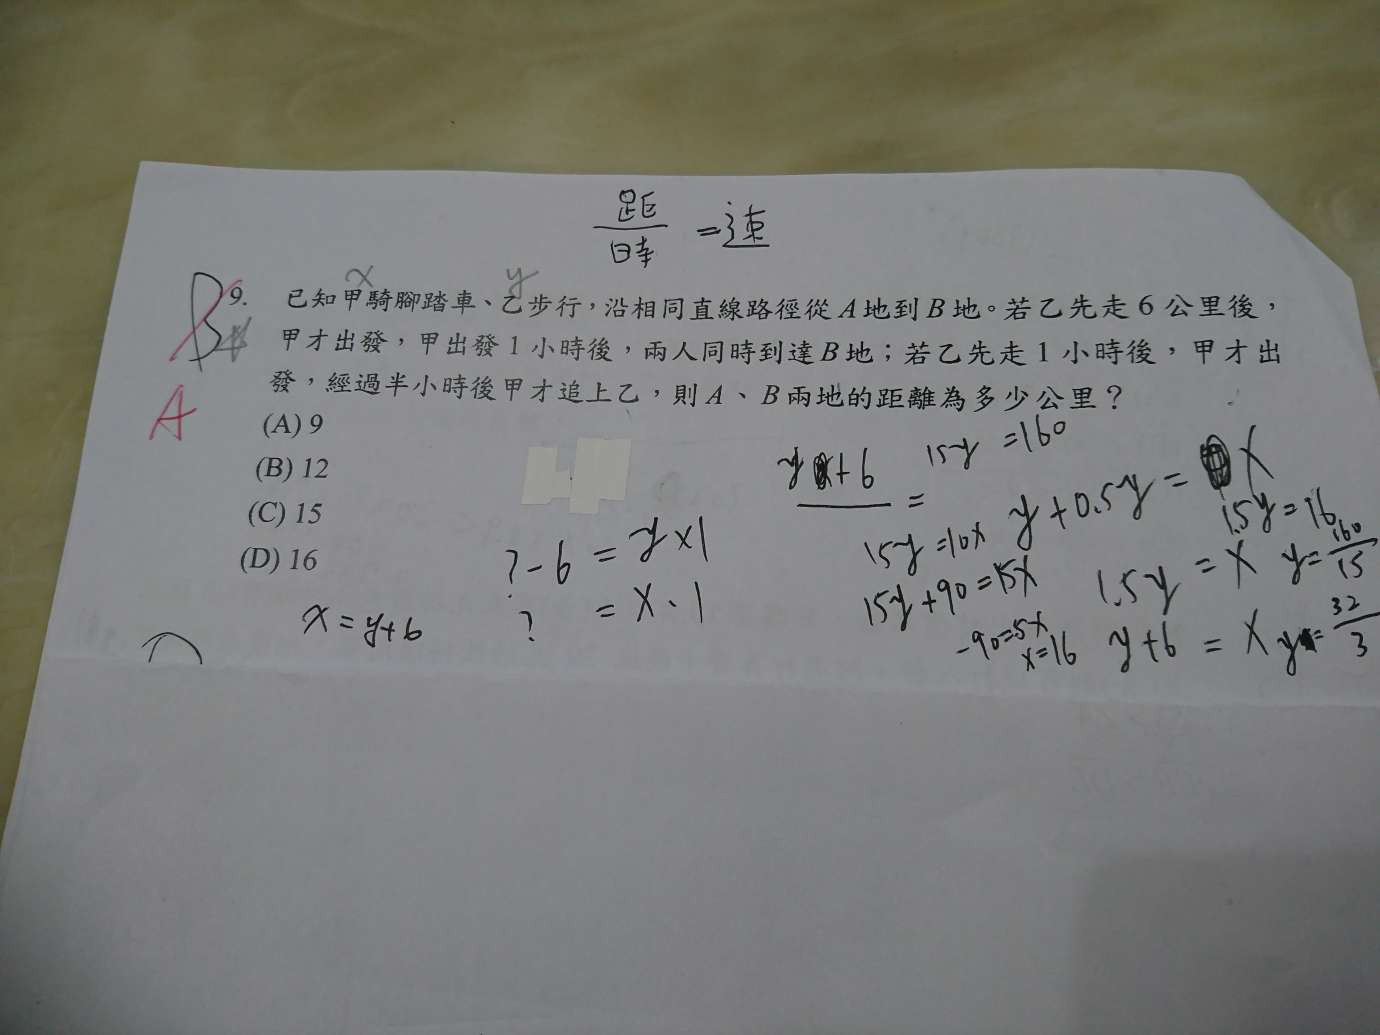 距
時 = 速
x y
B
9. 已知甲騎腳踏車、乙步行，沿相同直線路徑從 A 地到 B 地。若乙先走 6 公里後，
甲才出發，甲出發 1 小時後，兩人同時到達 B 地；若乙先走 1 小時後，甲才出
發，經過半小時後甲才追上乙，則 A、B 兩地的距離為多少公里？
A
(A) 9
(B) 12
(C) 15
(D) 16
x = y+6
?-6 = y×1
? = x·1
y+6 =
15y =160
15y =10x
15y+90=15x
-90=5x
x=16
y+0.5y = x
1.5y = x
y+6 = x
1.5y=16
y= 160/15
y= 32/3